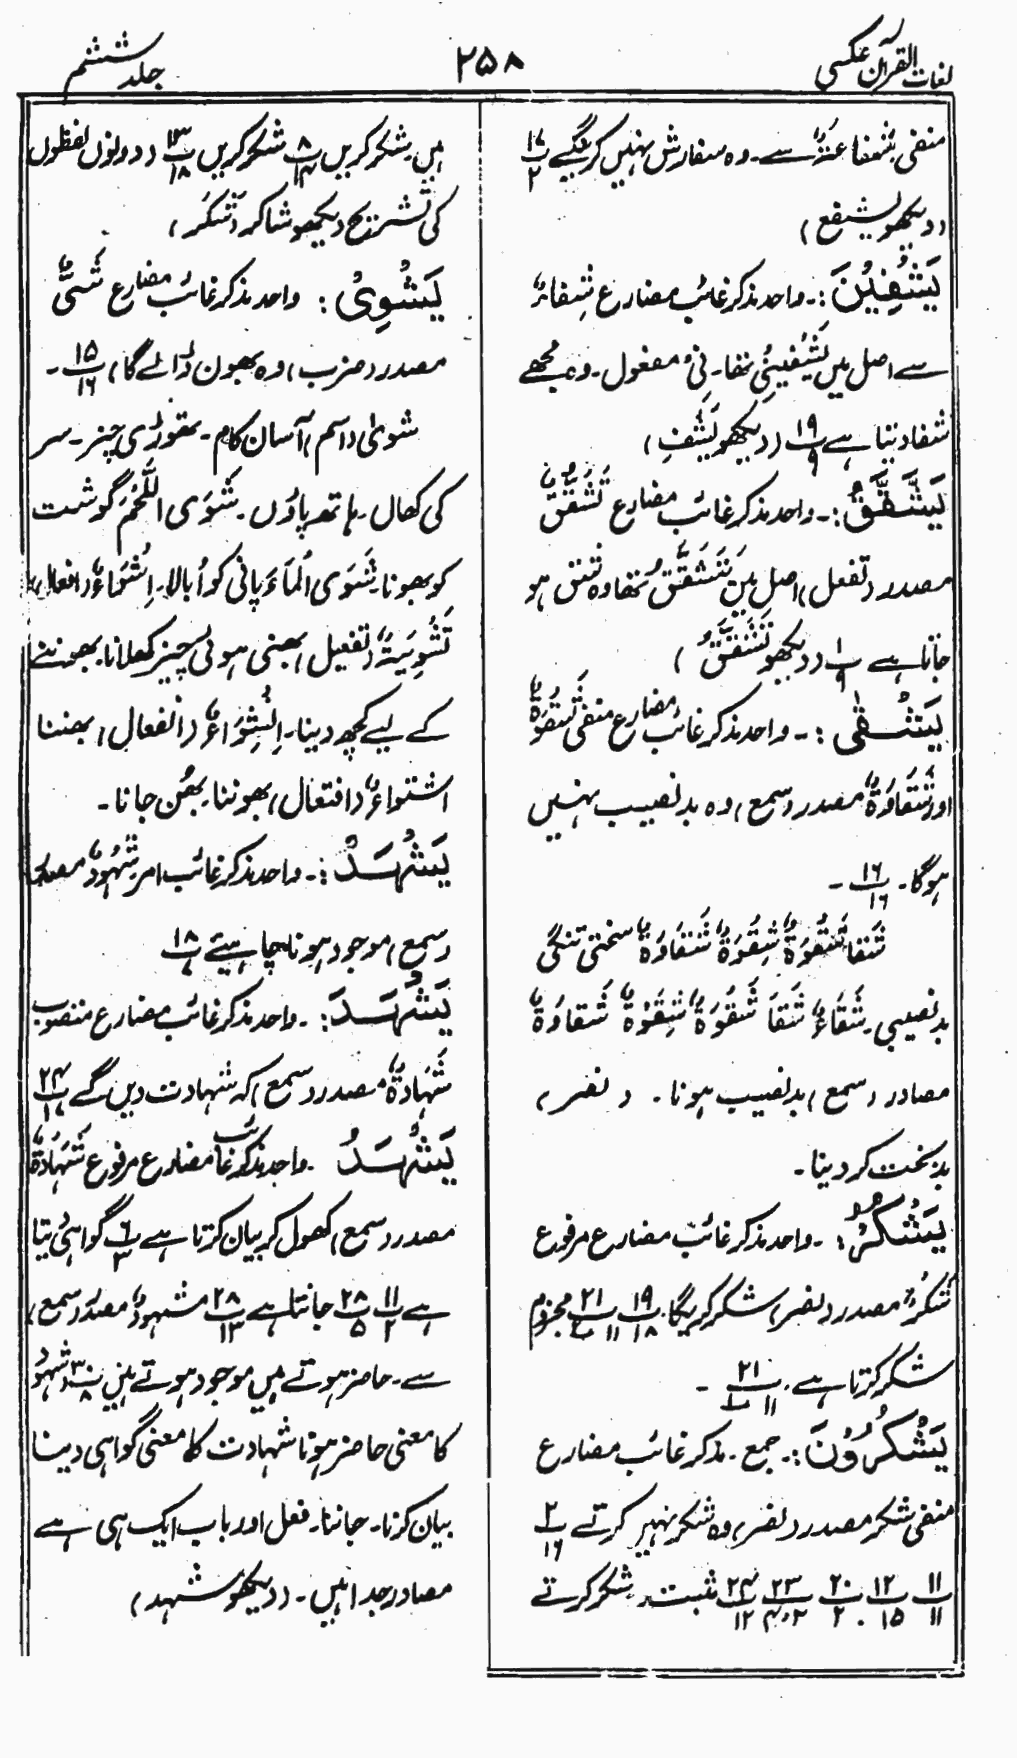 لغات القرآن عکسی
۲۵۸
جلد ششم
منفی شفاعۃٌ سے۔ وہ سفارش نہیں کرینگے ۱۷/۲
(دیکھو یشفع)
یَشْفِیْنَ :۔ واحد مذکر غائب مضارع شِفاءٌ
سے اصل میں یَشْفِیْنِیْ تھا۔ نِیْ مفعول۔ وہ مجھے
شفا دیتا ہے ۱۹/۹ (دیکھو یَشْفِ)
یَشَّقَّقُ :۔ واحد مذکر غائب مضارع تَشَقُّقٌ
مصدر (تفعل) اصل میں یَتَشَقَّقُ تھا وہ شق ہو
جاتا ہے ۱/۹ (دیکھو تَشَقَّقُ)
یَشْقٰی :۔ واحد مذکر غائب مضارع منفی شَقْوَةٌ
اور شَقَاوَةٌ مصدر (سمع) وہ بدنصیب نہیں
ہوگا۔ ۱۶/۱۶ ۔
شَقَا شَقْوَةٌ شِقْوَةٌ شَقَاوَةٌ سختی تنگی
بدنصیبی۔ شَقَاءٌ شَقَا شَقْوَةٌ شِقْوَةٌ شَقاوَةٌ
مصادر (سمع) بدنصیب ہونا۔ (نصر)
بدبخت کر دینا۔
یَشْکُرُ :۔ واحد مذکر غائب مضارع مرفوع
شکرٌ مصدر (نصر) شکر کریگا ۱۹/۱۸ ۲۱/۱۱ مجزوم
شکر کرتا ہے۔ ۲۱/۱۱ ۔
یَشْکُرُوْنَ :۔ جمع۔ مذکر غائب مضارع
منفی شکر مصدر (نصر) وہ شکر نہیں کرتے ۲/۱۶
۱۱/۱۱ ۱۲/۱۵ ۲۰/۲ ۲۳/۴،۲ ۲۴/۱۲ مثبت۔ شکر کرتے
ہیں۔ شکر کریں ۸/۱۴ شکر کریں ۱۳/۱۸ (دونوں لفظوں
کی تشریح دیکھو شاکر (تَشْکُرُ)
یَشْوِیْ : واحد مذکر غائب مضارع شَیٌّ
مصدر (ضرب) وہ بھون ڈالے گا) ۱۵/۱۶ ۔
شویٰ (اسم) آسان کام۔ تھوڑی چیز۔ سر
کی کھال۔ ہاتھ پاؤں۔ شَوَی اللَّحْمَ گوشت
کو بھونا۔ شَوَی الْمَآءَ پانی کو اُبالا۔ اِشْوَاءٌ (افعال)
تَشْوِیَةٌ (تفعیل) بھنی ہوئی چیز کھلانا۔ بھوننے
کے لیے کچھ دینا۔ اِنْشِوَاءٌ (انفعال) بھننا
اشتواءٌ (افتعال) بھوننا۔ بھُن جانا۔
یَشْہَدْ :۔ واحد مذکر غائب امر شُہُودٌ مصدر
(سمع) موجود ہونا چاہیئے ۱۸
یَشْہَدَ :۔ واحد مذکر غائب مضارع منصوب
شَہَادَةٌ مصدر (سمع) کہ شہادت دیں گے ۲۴
یَشْہَدُ ۔ واحد مذکر غائب مضارع مرفوع شَہَادَةٌ
مصدر (سمع) کھول کر بیان کرتا ہے ۶/۳ گواہی دیتا
ہے ۱۱/۲ ۲۸/۵ جانتا ہے ۲۸/۱۳ شہودٌ مصدر (سمع)
سے۔ حاضر ہوتے ہیں موجود ہوتے ہیں ۳۰/۸ شہود
کا معنی حاضر ہونا شہادت کا معنی گواہی دینا
بیان کرنا۔ جاننا۔ فعل اور باب ایک ہی ہے
مصادر جدا ہیں۔ (دیکھو شہد)